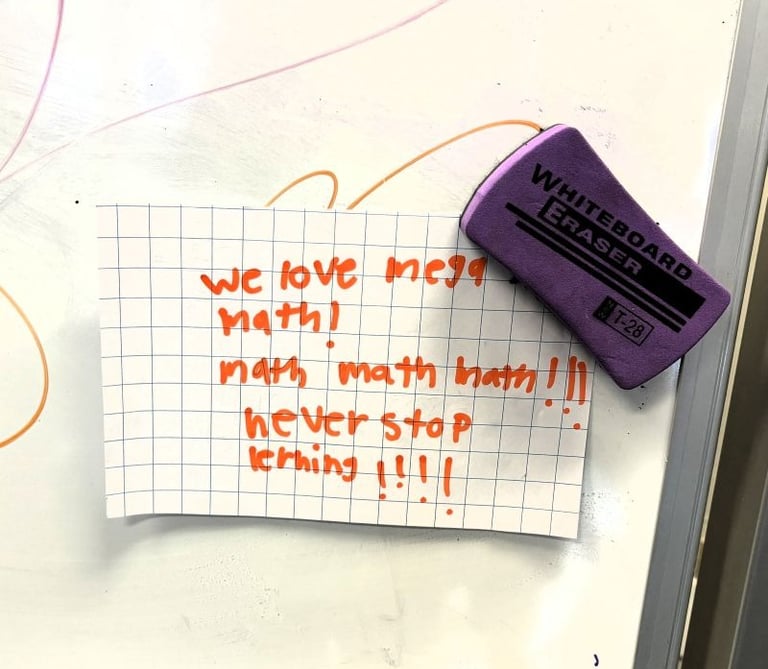 we love mega
math!
math math math!!!
never stop
lerning!!!!
WHITEBOARD
ERASER
T-28